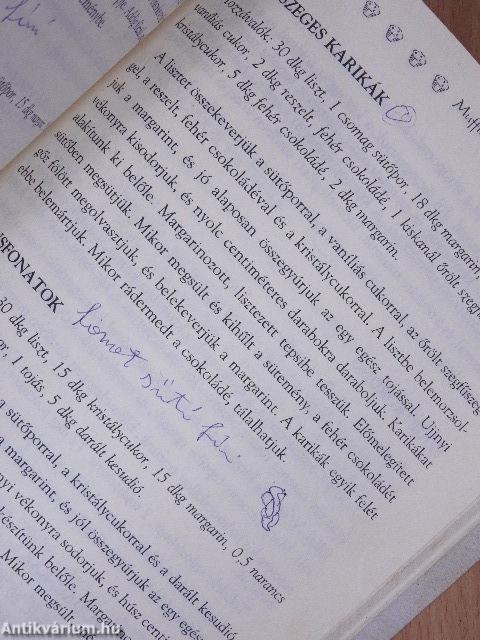 fini
Muff
SZEGES KARIKÁK
Hozzávalók: 30 dkg liszt, 1 csomag sütőpor, 18 dkg margarin,
vaníliás cukor, 2 dkg reszelt, fehér csokoládé, 1 kiskanál őrölt szegfű
kristálycukor, 5 dkg fehér csokoládé, 2 dkg margarin.
A lisztet összekeverjük a sütőporral, a vaníliás cukorral, az őrölt szegfűszeg
gel, a reszelt, fehér csokoládéval és a kristálycukorral. A lisztbe belemorzsol
juk a margarint, és jó alaposan összegyúrjuk az egy egész tojással. Ujjnyi
vékonyra kisodorjuk, és nyolc centiméteres darabokra daraboljuk. Karikákat
alakítunk ki belőle. Margarinozott, lisztezett tepsibe tesszük. Előmelegített
sütőben megsütjük. Mikor megsült és kihűlt a sütemény, a fehér csokoládét
gőz fölött megolvasztjuk, és belekeverjük a margarint. A karikák egyik felét
ebbe belemártjuk. Mikor rádermedt a csokoládé, tálalhatjuk.
SFONATOK
süti fini
30 dkg liszt, 15 dkg kristálycukor, 15 dkg margarin, 0,5 narancs
or, 1 tojás, 5 dkg darált kesudió.
a sütőporral, a kristálycukorral és a darált kesudió
a margarint, és jól összegyúrjuk az egy egész
nyi vékonyra sodorjuk, és húsz centi
készítünk belőle. Margar
Mikor megsült